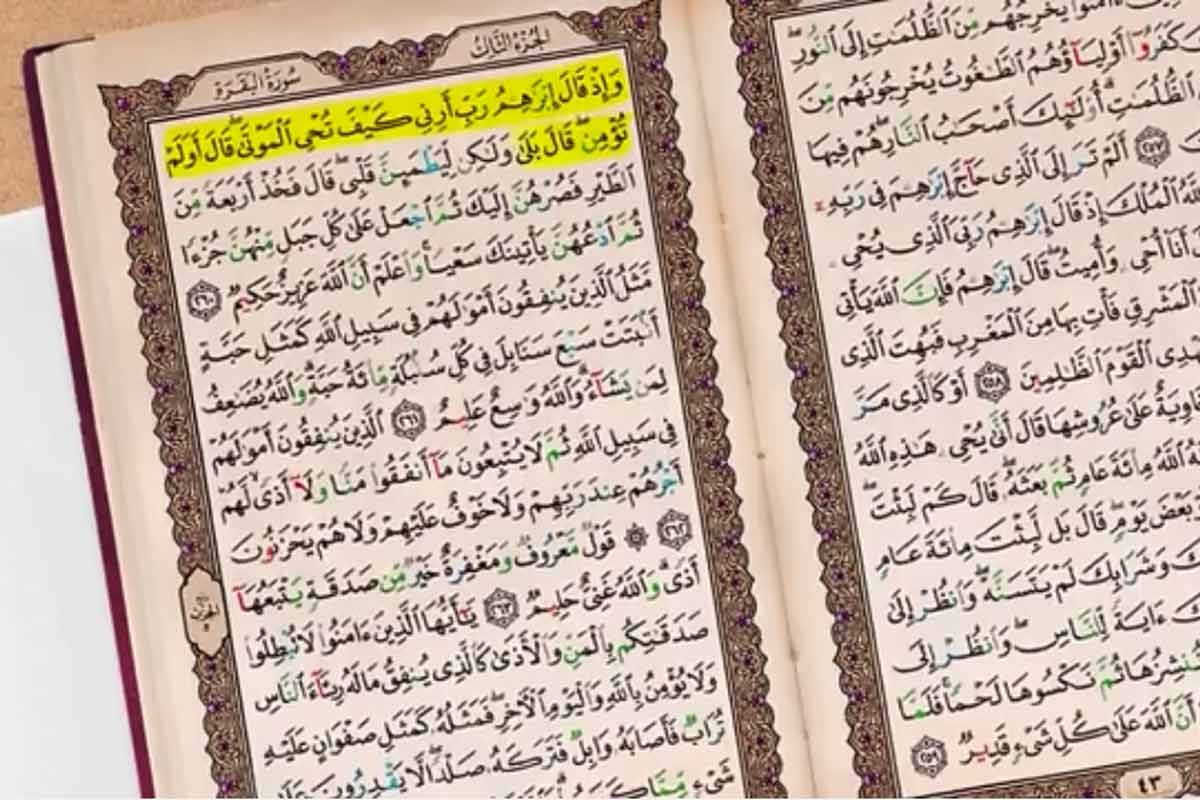 ءَامَنُوا يُخْرِجُهُم مِّنَ ٱلظُّلُمَٰتِ إِلَى ٱلنُّورِ
كَفَرُوٓا أَوْلِيَآؤُهُمُ ٱلطَّٰغُوتُ يُخْرِجُونَهُم مِّنَ
ٱلظُّلُمَٰتِ أُولَٰٓئِكَ أَصْحَٰبُ ٱلنَّارِ هُمْ فِيهَا
٢٥٧ أَلَمْ تَرَ إِلَى ٱلَّذِى حَآجَّ إِبْرَٰهِمَ فِى رَبِّهِ
ٱلْمُلْكَ إِذْ قَالَ إِبْرَٰهِمُ رَبِّىَ ٱلَّذِى يُحْىِ
أَنَا أُحْىِ وَأُمِيتُ قَالَ إِبْرَٰهِمُ فَإِنَّ ٱللَّهَ يَأْتِى
ٱلْمَشْرِقِ فَأْتِ بِهَا مِنَ ٱلْمَغْرِبِ فَبُهِتَ ٱلَّذِى
ٱلْقَوْمَ ٱلظَّٰلِمِينَ ٢٥٨ أَوْ كَٱلَّذِى مَرَّ
عَلَىٰ عُرُوشِهَا قَالَ أَنَّىٰ يُحْىِ هَٰذِهِ ٱللَّهُ
ٱللَّهُ مِائَةَ عَامٍ ثُمَّ بَعَثَهُ قَالَ كَمْ لَبِثْتَ
بَعْضَ يَوْمٍ قَالَ بَل لَّبِثْتَ مِائَةَ عَامٍ
وَشَرَابِكَ لَمْ يَتَسَنَّهْ وَٱنظُرْ إِلَىٰ
ءَايَةً لِّلنَّاسِ وَٱنظُرْ إِلَى
نُنشِزُهَا ثُمَّ نَكْسُوهَا لَحْمًا فَلَمَّا
أَنَّ ٱللَّهَ عَلَىٰ كُلِّ شَىْءٍ قَدِيرٌ ٢٥٩
٤٣
الجُزءُ الثَّالِث
سُورَةُ البَقَرَة
وَإِذْ قَالَ إِبْرَٰهِمُ رَبِّ أَرِنِى كَيْفَ تُحْىِ ٱلْمَوْتَىٰ قَالَ أَوَلَمْ
تُؤْمِن قَالَ بَلَىٰ وَلَٰكِن لِّيَطْمَئِنَّ قَلْبِى قَالَ فَخُذْ أَرْبَعَةً مِّنَ
ٱلطَّيْرِ فَصُرْهُنَّ إِلَيْكَ ثُمَّ ٱجْعَلْ عَلَىٰ كُلِّ جَبَلٍ مِّنْهُنَّ جُزْءًا
ثُمَّ ٱدْعُهُنَّ يَأْتِينَكَ سَعْيًا وَٱعْلَمْ أَنَّ ٱللَّهَ عَزِيزٌ حَكِيمٌ ٢٦٠
مَّثَلُ ٱلَّذِينَ يُنفِقُونَ أَمْوَٰلَهُمْ فِى سَبِيلِ ٱللَّهِ كَمَثَلِ حَبَّةٍ
أَنبَتَتْ سَبْعَ سَنَابِلَ فِى كُلِّ سُنبُلَةٍ مِّائَةُ حَبَّةٍ وَٱللَّهُ يُضَٰعِفُ
لِمَن يَشَآءُ وَٱللَّهُ وَٰسِعٌ عَلِيمٌ ٢٦١ ٱلَّذِينَ يُنفِقُونَ أَمْوَٰلَهُمْ
فِى سَبِيلِ ٱللَّهِ ثُمَّ لَا يُتْبِعُونَ مَآ أَنفَقُوا مَنًّا وَلَآ أَذًى لَّهُمْ
أَجْرُهُمْ عِندَ رَبِّهِمْ وَلَا خَوْفٌ عَلَيْهِمْ وَلَا هُمْ يَحْزَنُونَ
٢٦٢ ۞ قَوْلٌ مَّعْرُوفٌ وَمَغْفِرَةٌ خَيْرٌ مِّن صَدَقَةٍ يَتْبَعُهَآ
أَذًى وَٱللَّهُ غَنِىٌّ حَلِيمٌ ٢٦٣ يَٰٓأَيُّهَا ٱلَّذِينَ ءَامَنُوا لَا تُبْطِلُوا
صَدَقَٰتِكُم بِٱلْمَنِّ وَٱلْأَذَىٰ كَٱلَّذِى يُنفِقُ مَالَهُ رِئَآءَ ٱلنَّاسِ
وَلَا يُؤْمِنُ بِٱللَّهِ وَٱلْيَوْمِ ٱلْأَخِرِ فَمَثَلُهُ كَمَثَلِ صَفْوَانٍ عَلَيْهِ
تُرَابٌ فَأَصَابَهُ وَابِلٌ فَتَرَكَهُ صَلْدًا لَّا يَقْدِرُونَ عَلَىٰ
شَىْءٍ مِّمَّا